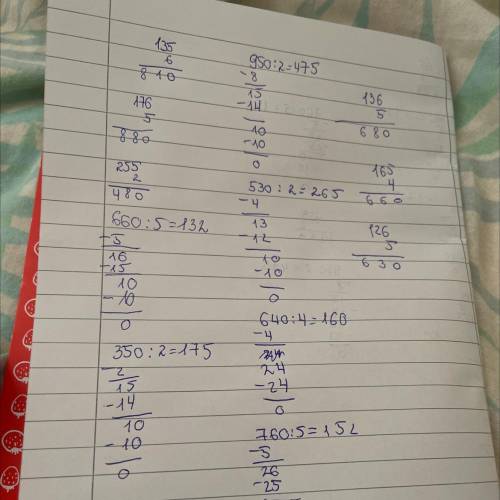 135
6
810
176
5
880
255
2
480
660:5=132
-5
16
-15
10
-10
0
350:2=175
-2
15
-14
10
-10
0
950:2=475
-8
15
-14
10
-10
0
530:2=265
-4
13
-12
10
-10
0
640:4=160
-4
24
-24
0
760:5=152
-5
26
-25
136
5
680
165
4
660
126
5
630